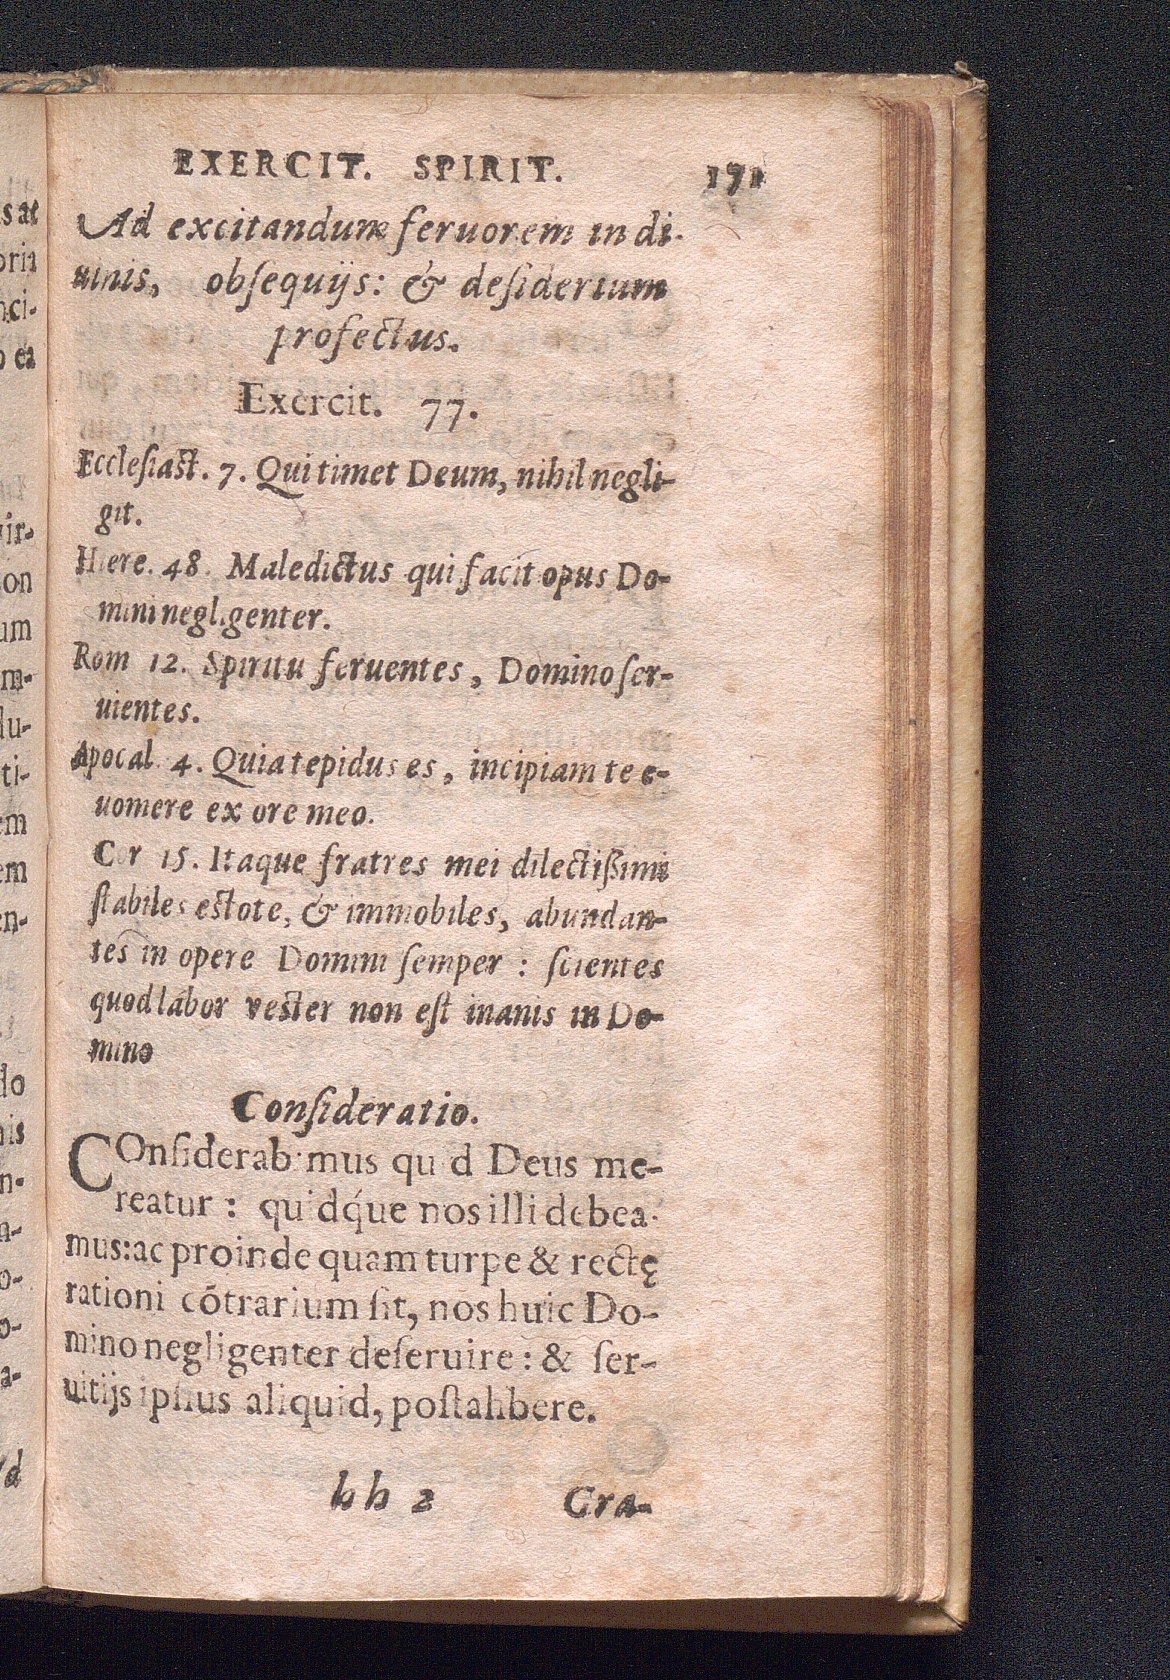 EXERCIT. SPIRIT. 171
Ad excitandum feruorem in di-
uinis, obſequijs: & deſiderium
profectus.
Exercit. 77.
Eccleſiaſt. 7. Qui timet Deum, nihil negli-
git.
Hiere. 48. Maledictus qui facit opus Do-
mini negligenter.
Rom 12. Spiritu feruentes, Domino ſer-
uientes.
Apocal. 4. Quia tepidus es, incipiam te e-
uomere ex ore meo.
Cor 15. Itaque fratres mei dilectißimi
ſtabiles eſtote, & immobiles, abundan-
tes in opere Domini ſemper: ſcientes
quod labor veſter non eſt inanis in Do-
mino
Conſideratio.
COnſiderabimus quid Deus me-
reatur: quidq́ue nos illi debea-
mus: ac proinde quam turpe & rectę
rationi cōtrarium ſit, nos huic Do-
mino negligenter deſeruire: & ſer-
uitijs ipſius aliquid, poſtahbere.
hh 2 Gra-